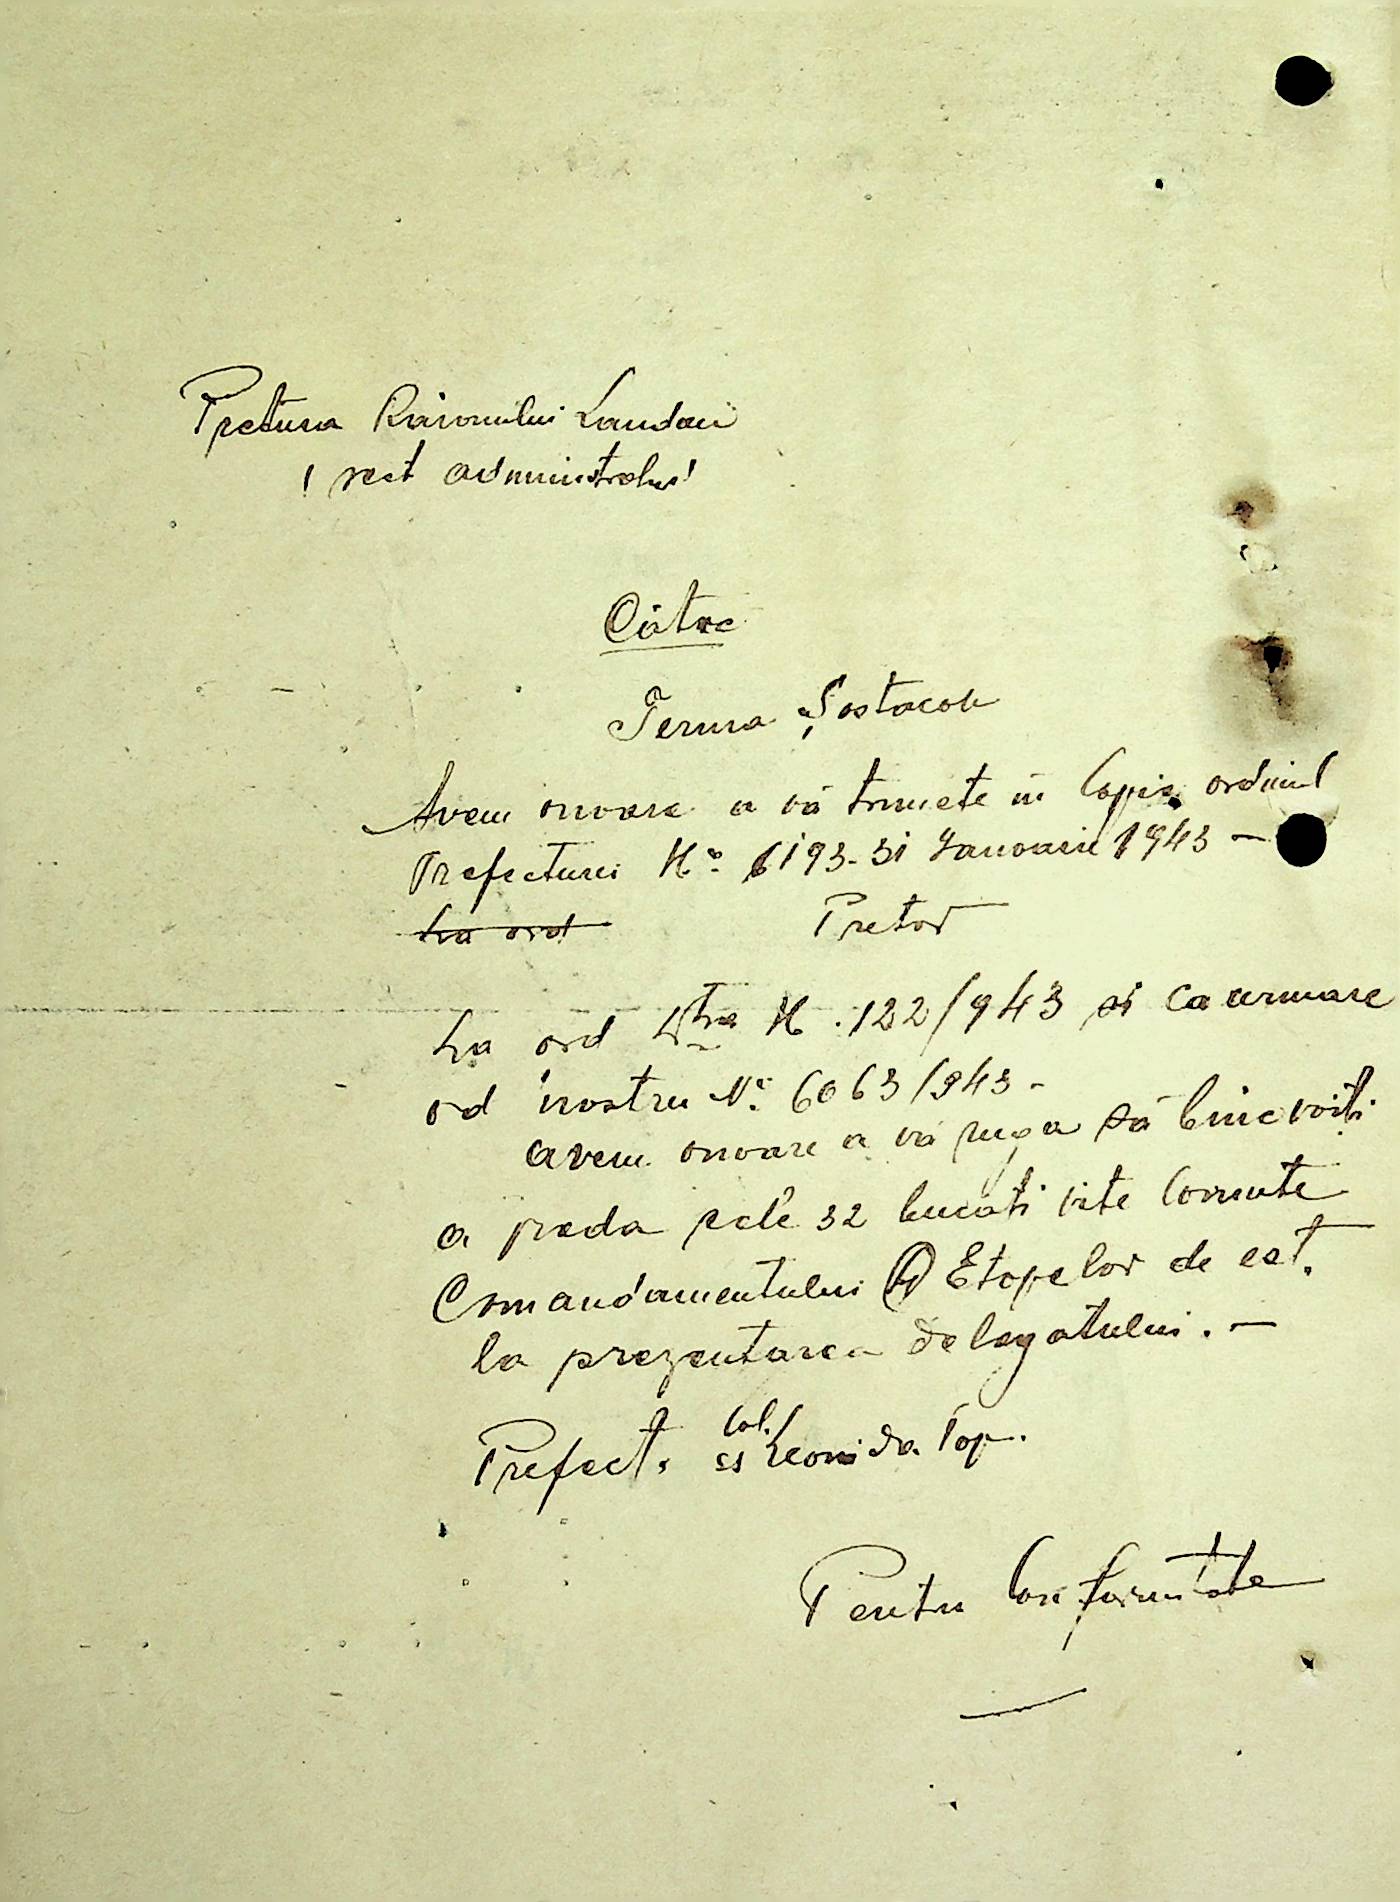 Pretura Raionului Landau
/ sect administrativ /
Către
Ferma Șostacov
Avem onoare a vă trimete în copie ordinul
Prefecturei No. 6193-31 Ianuarie 1943 —
La ord
Pretor
La ord Dtră N. 122/943 și ca urmare
ord nostru No. 6063/943 -
avem onoare a vă ruga să binevoiți
a preda cele 32 bucăți vite cornute
Comandamentului Etapelor de est.
la prezentarea delegatului. —
Prefect. ss Col. Leonida Pop.
Pentru Conformitate